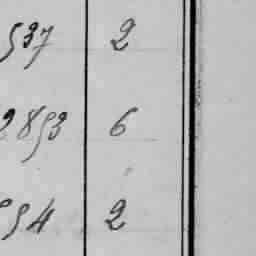 537 2
2853 6
54 2